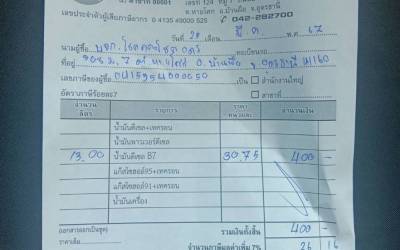 สาขาที่ 00001
เลขที่ 124 หมู่
ต.หายโศก อ.บ้านผือ จ.อุดรธานี
เลขประจำตัวผู้เสียภาษีอากร 0 4135 49000 525
042-282700
วันที่ 20 เดือน มี.ค 67
นามผู้ซื้อ ทะเบียนรถ
ที่อยู่ อ.บ้านผือ จ.อุดรธานี 41160
เลขภาษีของผู้ซื้อ เป็น สำนักงานใหญ่
อัตราภาษีร้อยละ7 สาขา
จำนวน ลิตร รายการ ราคา หน่วยละ จำนวนเงิน
น้ำมันดีเซล+เทครอน
น้ำมันเพาเวอร์ดีเซล
13.00 น้ำมันดีเซล B7 30.75 400 -
แก๊สโซฮอล์95+เทครอน
แก๊สโซฮอล์91+เทครอน
น้ำมันเครื่อง
รวมเงินทั้งสิ้น 400 -
จำนวนภาษีมูลค่าเพิ่ม 7% 26 16